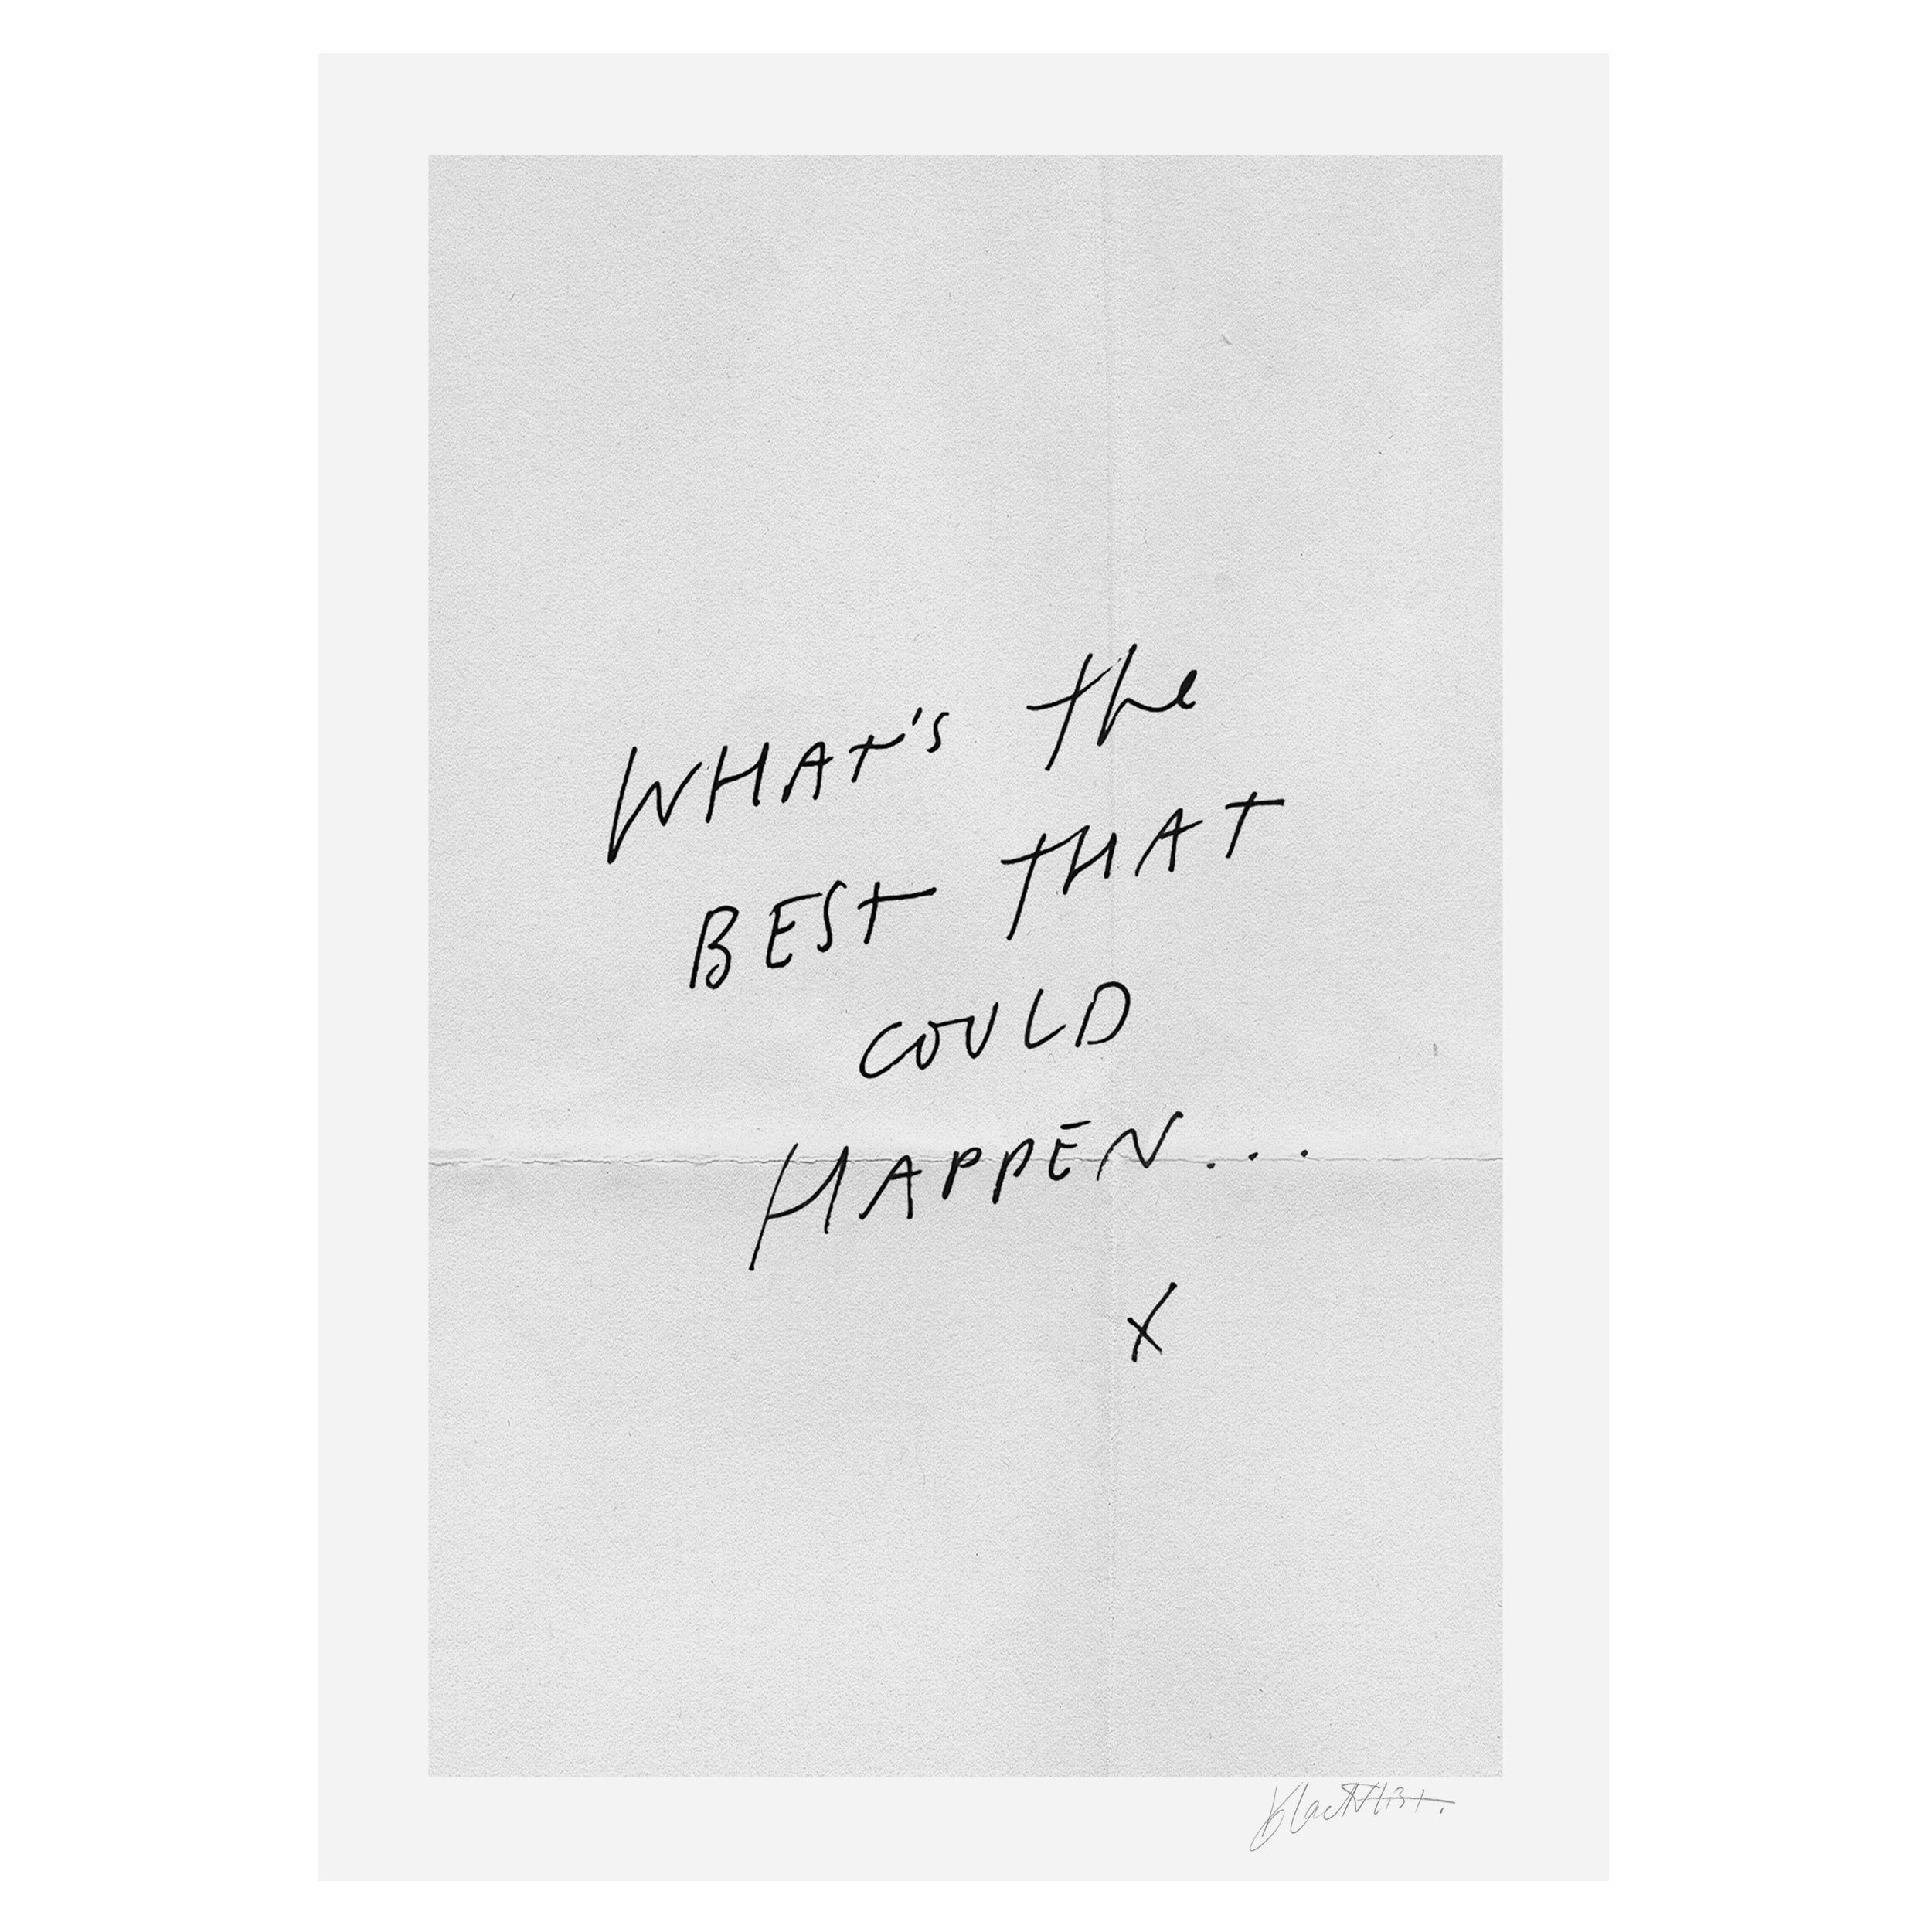 WHAt's the
BESt tHAT
COULD
HAPPEN...
x
blacklist.